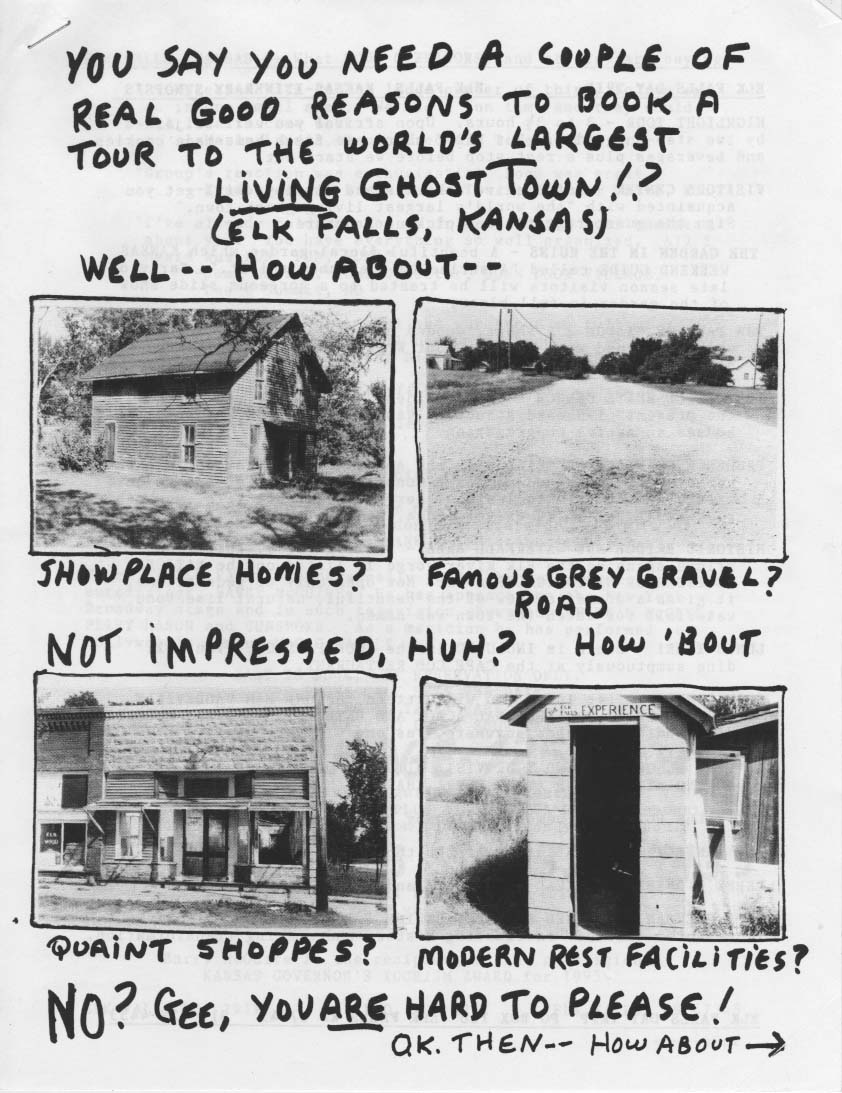 YOU SAY YOU NEED A COUPLE OF
REAL GOOD REASONS TO BOOK A
TOUR TO THE WORLD'S LARGEST
LIVING GHOST TOWN!?
(ELK FALLS, KANSAS)
WELL-- HOW ABOUT--
SHOWPLACE HOMES?
FAMOUS GREY GRAVEL?
ROAD
NOT IMPRESSED, HUH? HOW 'BOUT
ELK FALLS EXPERIENCE
QUAINT SHOPPES?
MODERN REST FACILITIES?
NO? GEE, YOU ARE HARD TO PLEASE!
OK. THEN-- HOW ABOUT→